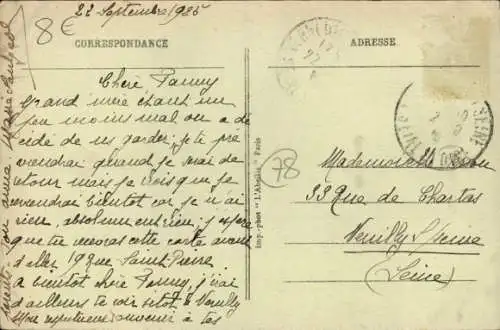 22 Septembre 1925
8€
CORRESPONDANCE
Chère Fanny
Grand mère étant un
peu moins mal on a dé
cidé de me garder; je te pré
viendrai quand je serai de
retour mais je crois que je
reviendrai bientôt car je n'ai
rien, absolument rien; j'espère
que tu recevras cette carte avant
d'aller 19 rue Saint Pierre
A bientôt chère Fanny, j'irai
d'ailleurs te voir sitôt à Neuilly
souvenir à tes
ton amie
Imp. phot "L'Abeille" Paris
78
ADRESSE
Mademoiselle
33 Rue de Chartres
Neuilly S/Seine
(Seine)